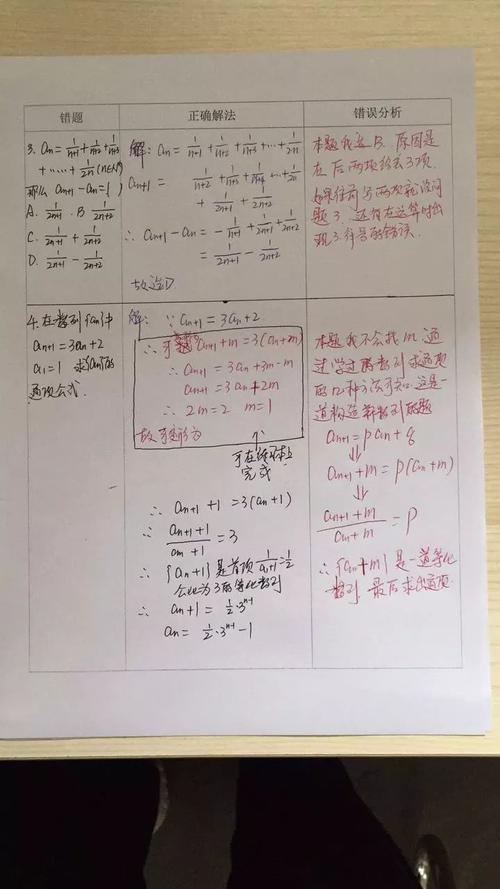 错题
正确解法
错误分析
3. an = 1/(n+1) + 1/(n+2) + 1/(n+3)
+ ⋯⋯ + 1/2n (n∈N*)
那么 an+1 − an = ( )
A. 1/(2n+1) . B 1/(2n+2)
C. 1/(2n+1) + 1/(2n+2)
D. 1/(2n+1) − 1/(2n+2)
解: an = 1/(n+1) + 1/(n+2) + 1/(n+3) + ⋯ + 1/2n
an+1 = 1/(n+2) + 1/(n+3) + 1/(n+4) + ⋯ + 1/2n
+ 1/(2n+1) + 1/(2n+2)
∴ an+1 − an = − 1/(n+1) + 1/(2n+1) + 1/(2n+2)
= 1/(2n+1) − 1/(2n+2)
故选D
本题我选B. 原因是
在后两项给丢了项.
如果往前写两项就没问
题了. 还有在运算时出
现了符号的错误.
4. 在数列{an}中
an+1 = 3an + 2
a1 = 1 求{an}的
通项公式.
解: ∵ an+1 = 3an + 2
∴ an+1 + m = 3(an + m)
∴ an+1 = 3an + 3m − m
an+1 = 3an + 2m
∴ 2m = 2 m = 1
故可变形为
可在练习本上
完成
∴ an+1 + 1 = 3(an + 1)
∴ (an+1 + 1)/(an + 1) = 3
∴ {an + 1} 是首项 1/(a1+1) = 1/2
公比为3的等比数列
∴ an + 1 = 1/2 · 3^(n−1)
an = 1/2 · 3^(n−1) − 1
本题我不会找 m. 通
过学过的数列求通项
的几种方法可知. 这是一
道构造等数列的题
an+1 = p an + q
⇓
an+1 + m = p(an + m)
⇓
(an+1 + m)/(an + m) = p
∴ {an + m} 是一道等比
数列 最后求出通项.